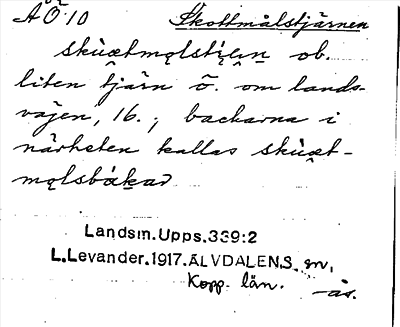 AÖ:10 Skottmålstjärnen
skùætmǫlstįęņ ob.
liten tjärn ö. om lands-
vägen, 16.; backarna i
närheten kallas skùæt-
mǫlsbákar
Landsm.Upps.339:2
L.Levander.1917.ÄLVDALENS sn,
Kopp. län.
-ås.